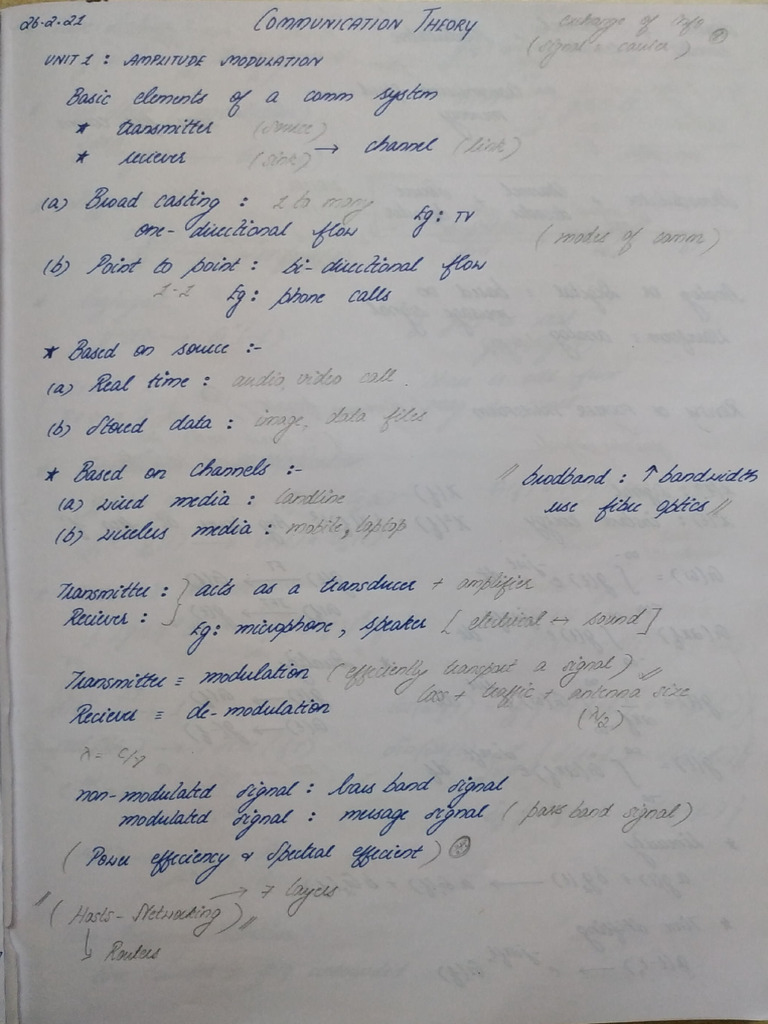 26-2-21 COMMUNICATION THEORY exhange of info
(signal = carrier)
UNIT 1 : AMPLITUDE MODULATION
Basic elements of a comm system
* transmitter (source)
* reciever (sink) → channel (link)
(a) Broad casting : 1 to many Eg: TV
one-directional flow (modes of comm)
(b) Point to point : bi-directional flow
1-1 Eg: phone calls
* Based on source :-
(a) Real time : audio, video call.
(b) Stored data : image, data files
* Based on channels :- " brodband : ↑ bandwidth
(a) wired media : landline use fibre optics "
(b) wireless media : mobile, laptop
Transmitter : } acts as a transducer + amplifier
Reciever : Eg: microphone, speaker [electrical ↔ sound]
Transmitter ≡ modulation (efficiently transport a signal)
Reciever ≡ de-modulation loss + traffic + antenna size "
(λ/2)
λ = c/γ
non-modulated signal : base band signal
modulated signal : message signal (pass band signal)
(Power efficiency & Spectral efficient)
" (Hosts - Networking) " → 7 layers
↳ Routers